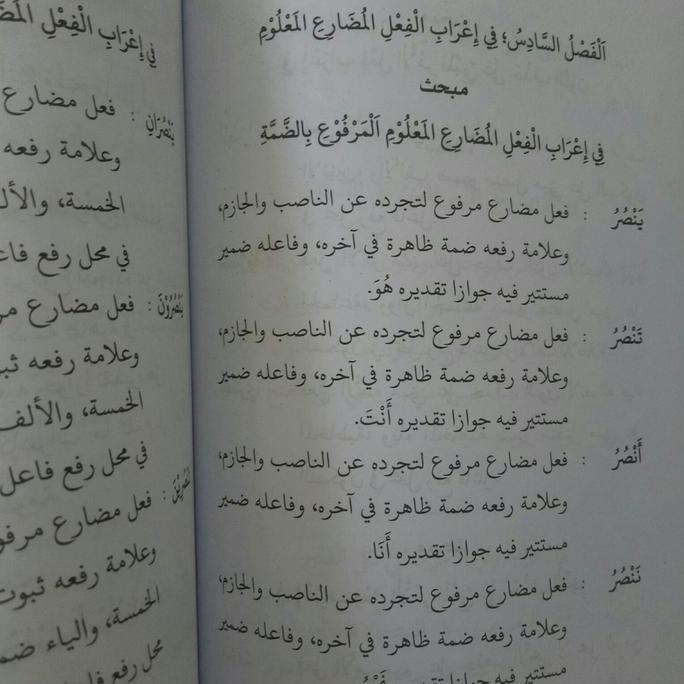 اَلْفَصْلُ السَّادِسُ؛ فِي إِعْرَابِ الْفِعْلِ الْمُضَارِعِ الْمَعْلُوْمِ
مبحث
فِي إِعْرَابِ الْفِعْلِ الْمُضَارِعِ الْمَعْلُوْمِ اَلْمَرْفُوْعِ بِالضَّمَّةِ
يَنْصُرُ : فعل مضارع مرفوع لتجرده عن الناصب والجازم،
وعلامة رفعه ضمة ظاهرة في آخره، وفاعله ضمير
مستتير فيه جوازا تقديره هُوَ.
تَنْصُرُ : فعل مضارع مرفوع لتجرده عن الناصب والجازم،
وعلامة رفعه ضمة ظاهرة في آخره، وفاعله ضمير
مستتير فيه جوازا تقديره أَنْتَ.
أَنْصُرُ : فعل مضارع مرفوع لتجرده عن الناصب والجازم،
وعلامة رفعه ضمة ظاهرة في آخره، وفاعله ضمير
مستتير فيه جوازا تقديره أَنَا.
نَنْصُرُ : فعل مضارع مرفوع لتجرده عن الناصب والجازم،
وعلامة رفعه ضمة ظاهرة في آخره، وفاعله ضمير
مستتير فيه جوازا
فِي إِعْرَابِ الْفِعْلِ
يَنْصُرَانِ : فعل مضارع
وعلامة رفعه
الخمسة، والألف
في محل رفع فاعل
يَنْصُرُوْنَ : فعل مضارع
وعلامة رفعه
الخمسة، والألف
في محل رفع فاعل
: فعل مضارع
وعلامة رفعه ثبوت
الخمسة، والياء
محل رفع